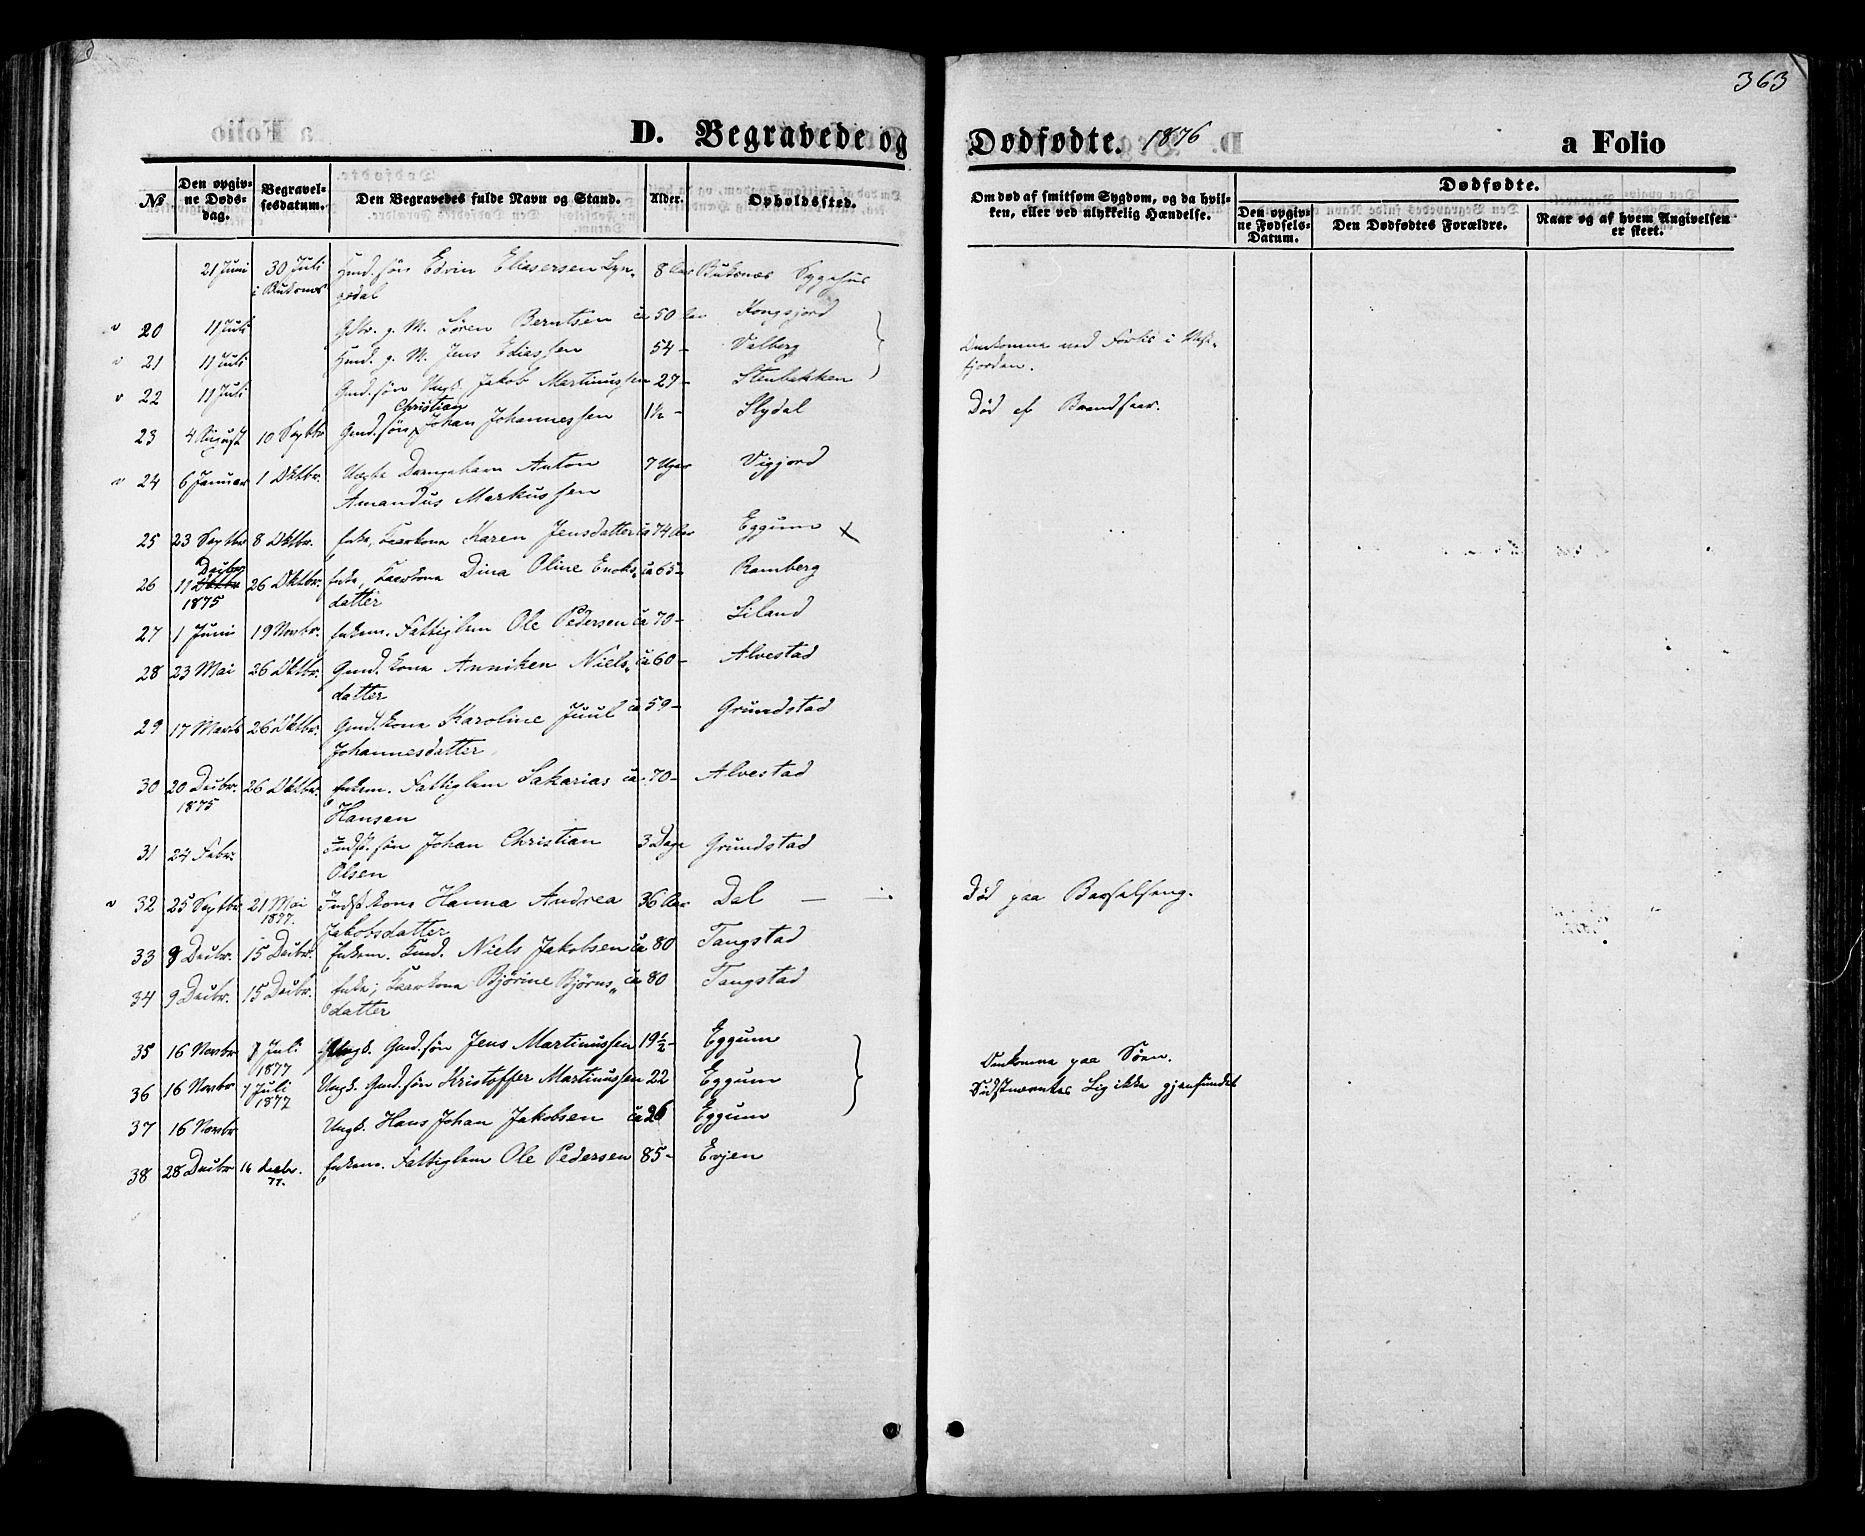 363
D. Begravede og Dødfødte. 1876 a Folio
No
Den opgivne Dødsdag.
Begravelsesdatum.
Den Begravedes fulde Navn og Stand.
Alder.
Opholdssted.
Om død af smitsom Sygdom, og da hvilken, eller ved ulykkelig Hændelse.
Dødfødte.
Den opgivne Fødsels-Datum.
Den Dødfødtes Forældre.
Naar og af hvem Angivelsen er skeet.
21 Juni 30 Juli i Buksnes søn Edvin Eliasersen Lyngedal 8 Aar Buksnes Sygehus
20 11 Juli g. M. Søren Berntsen ca 50 Aar Kongsjord
21 11 Juli g. M. Jens Ediassen 54 - Valberg Omkomne ved Forlis i Vestfjorden.
22 11 Juli Gmd. søn Ungk. Jakob Martinussen 27 - Stenbakken
23 4 August 10 Septbr Gmd. søn Christian Johan Johannessen 1½ - Slydal Død af Brandsaar.
24 6 Januar 1 Oktbr. Uægte Drengebarn Anton Amandus Markussen 7 Uger Vigjord
25 23 Septbr 8 Oktbr. Enke, Kaarkona Karen Jensdatter ca 74 Aar Eggum x
26 11 Decbr 1875 26 Oktbr. Enke, Kaarkona Dina Oline Enoksdatter ca 65 - Ramberg
27 1 Juni 19 Novbr. Enkem. Fattiglem Ole Pedersen ca 70 - Liland
28 23 Mai 26 Oktbr. Gmd. kona Anniken Nielsdatter ca 60 - Alvestad
29 17 Marts 26 Oktbr. Gmd. kona Karoline Juul Johannesdatter ca 59 - Grundstad
30 20 Decbr. 1875 26 Oktbr. Enkem. Fattiglem Sakarias Hansen ca 70 - Alvestad
31 24 Febr. Indst. søn Johan Christian Olsen 3 Dage Grundstad
32 25 Septbr 21 Mai 1877. Indst. kona Hanna Andrea Jakobsdatter 36 Aar Dal — Død paa Barselseng.
33 9 Decbr. 15 Decbr. Enkem. Niels Jakobsen ca 80 Tangstad
34 9 Decbr. 15 Decbr. Enke, Kaarkona Bjørine Bjørnsdatter ca 80 Tangstad
35 16 Novbr 1 Juli 1877 Ungk. Gmd. søn Jens Martinussen 19½ - Eggum Omkomne paa Søen.
36 16 Novbr 1 Juli 1877 Ungk. Gmd. søn Kristoffer Martinussen 22 Eggum Sidstnævntes Lig ikke gjenfundet
37 16 Novbr Ungk. Hans Johan Jakobsen ca 26 Eggum
38 28 Decbr 16 decbr. 77. Enkem. Fattiglem Ole Pedersen 85 - Evjen